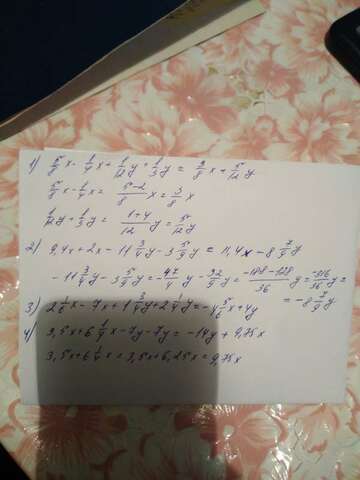 1) 5/8 x - 1/4 x + 1/12 y + 1/3 y = 3/8 x + 5/12 y
5/8 x - 1/4 x = (5-2)/8 x = 3/8 x
1/12 y + 1/3 y = (1+4)/12 y = 5/12 y
2) 9,4x + 2x - 11 3/4 y - 3 5/9 y = 11,4x - 8 7/9 y
- 11 3/4 y - 3 5/9 y = - 47/4 y - 32/9 y = (-188-128)/36 y = -316/36 y =
= - 8 7/9 y
3) 2 1/6 x - 7x + 1 3/4 y + 2 1/4 y = - 4 5/6 x + 4y
4) 3,5x + 6 1/4 x - 7y - 7y = - 14y + 9,75x
3,5x + 6 1/4 x = 3,5x + 6,25x = 9,75x